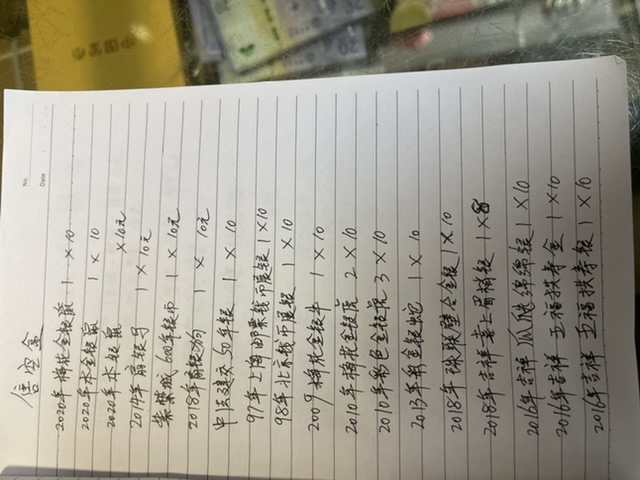 No.
Date
信空盒
2020年梅花金银鼠 1×10
2020年本金银鼠 1×10
2020年本银鼠 ×10元
2014年扇银马 1×10元
紫禁城600年银币 1×10元
2018年扇银狗 1×10元
中法建交50年银 1×10
97年上海邮票钱币展银 1×10
98年北京钱币展银 1×10
2009 梅花金银牛 1×10
2010年梅花金银虎 2×10
2010年彩色金银虎 3×10
2013年彩金银蛇 1×10
2018年 珠联璧合金银 1×10
2018年吉祥喜上眉梢银 1×8
2016年吉祥 瓜瓞绵绵银 1×10
2016年吉祥 五福拱寿金 1×10
2016年吉祥 五福拱寿银 1×10
中国金币
20